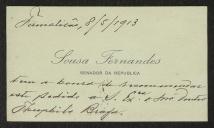 Famalicão, 8/5/1913
Sousa Fernandes
SENADOR DA REPUBLICA
tem a honra de recommendar
este pedido a S. Exª o Snr Doutor
Theophilo Braga.